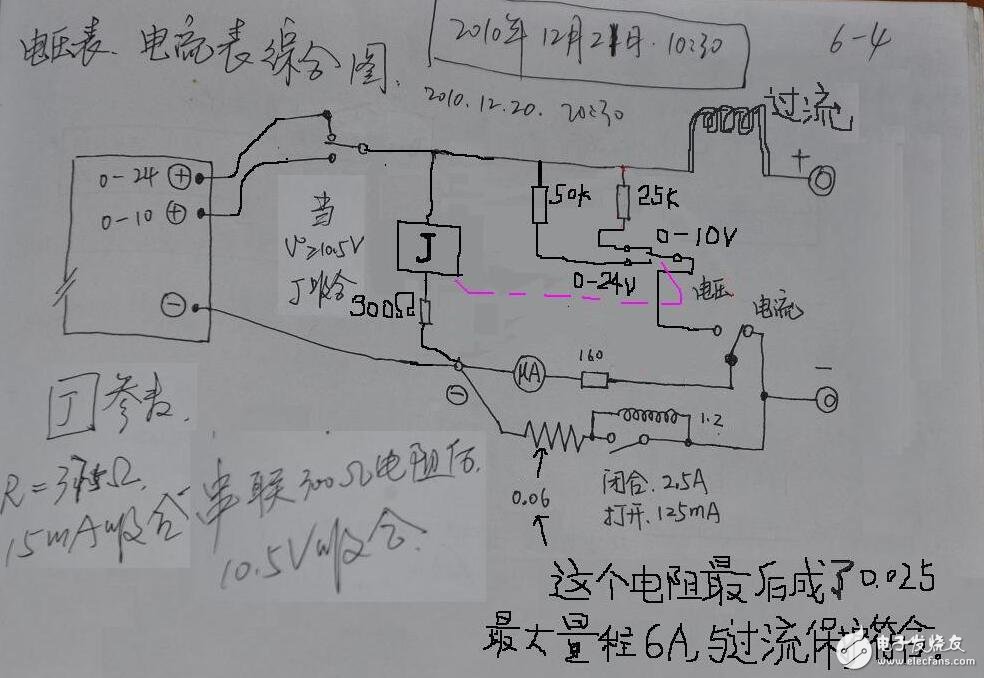 电压表、电流表综合图.
2010年12月21日.10:30
6-4
2010.12.20. 20:30
过流
+
0-24 +
0-10 +
50K
25K
当
V°≥10.5V
J吸合
J
0-10V
0-24V
电压
电流
300Ω
-
160
μA
-
-
1.2
J 参表.
R=375Ω.
15mA吸合
串联300Ω电阻后.
10.5V吸合.
0.06
闭合.2.5A
打开.125mA
这个电阻最后成了0.025
最大量程6A,与过流保护符合。
电子发烧友
www.elecfans.com